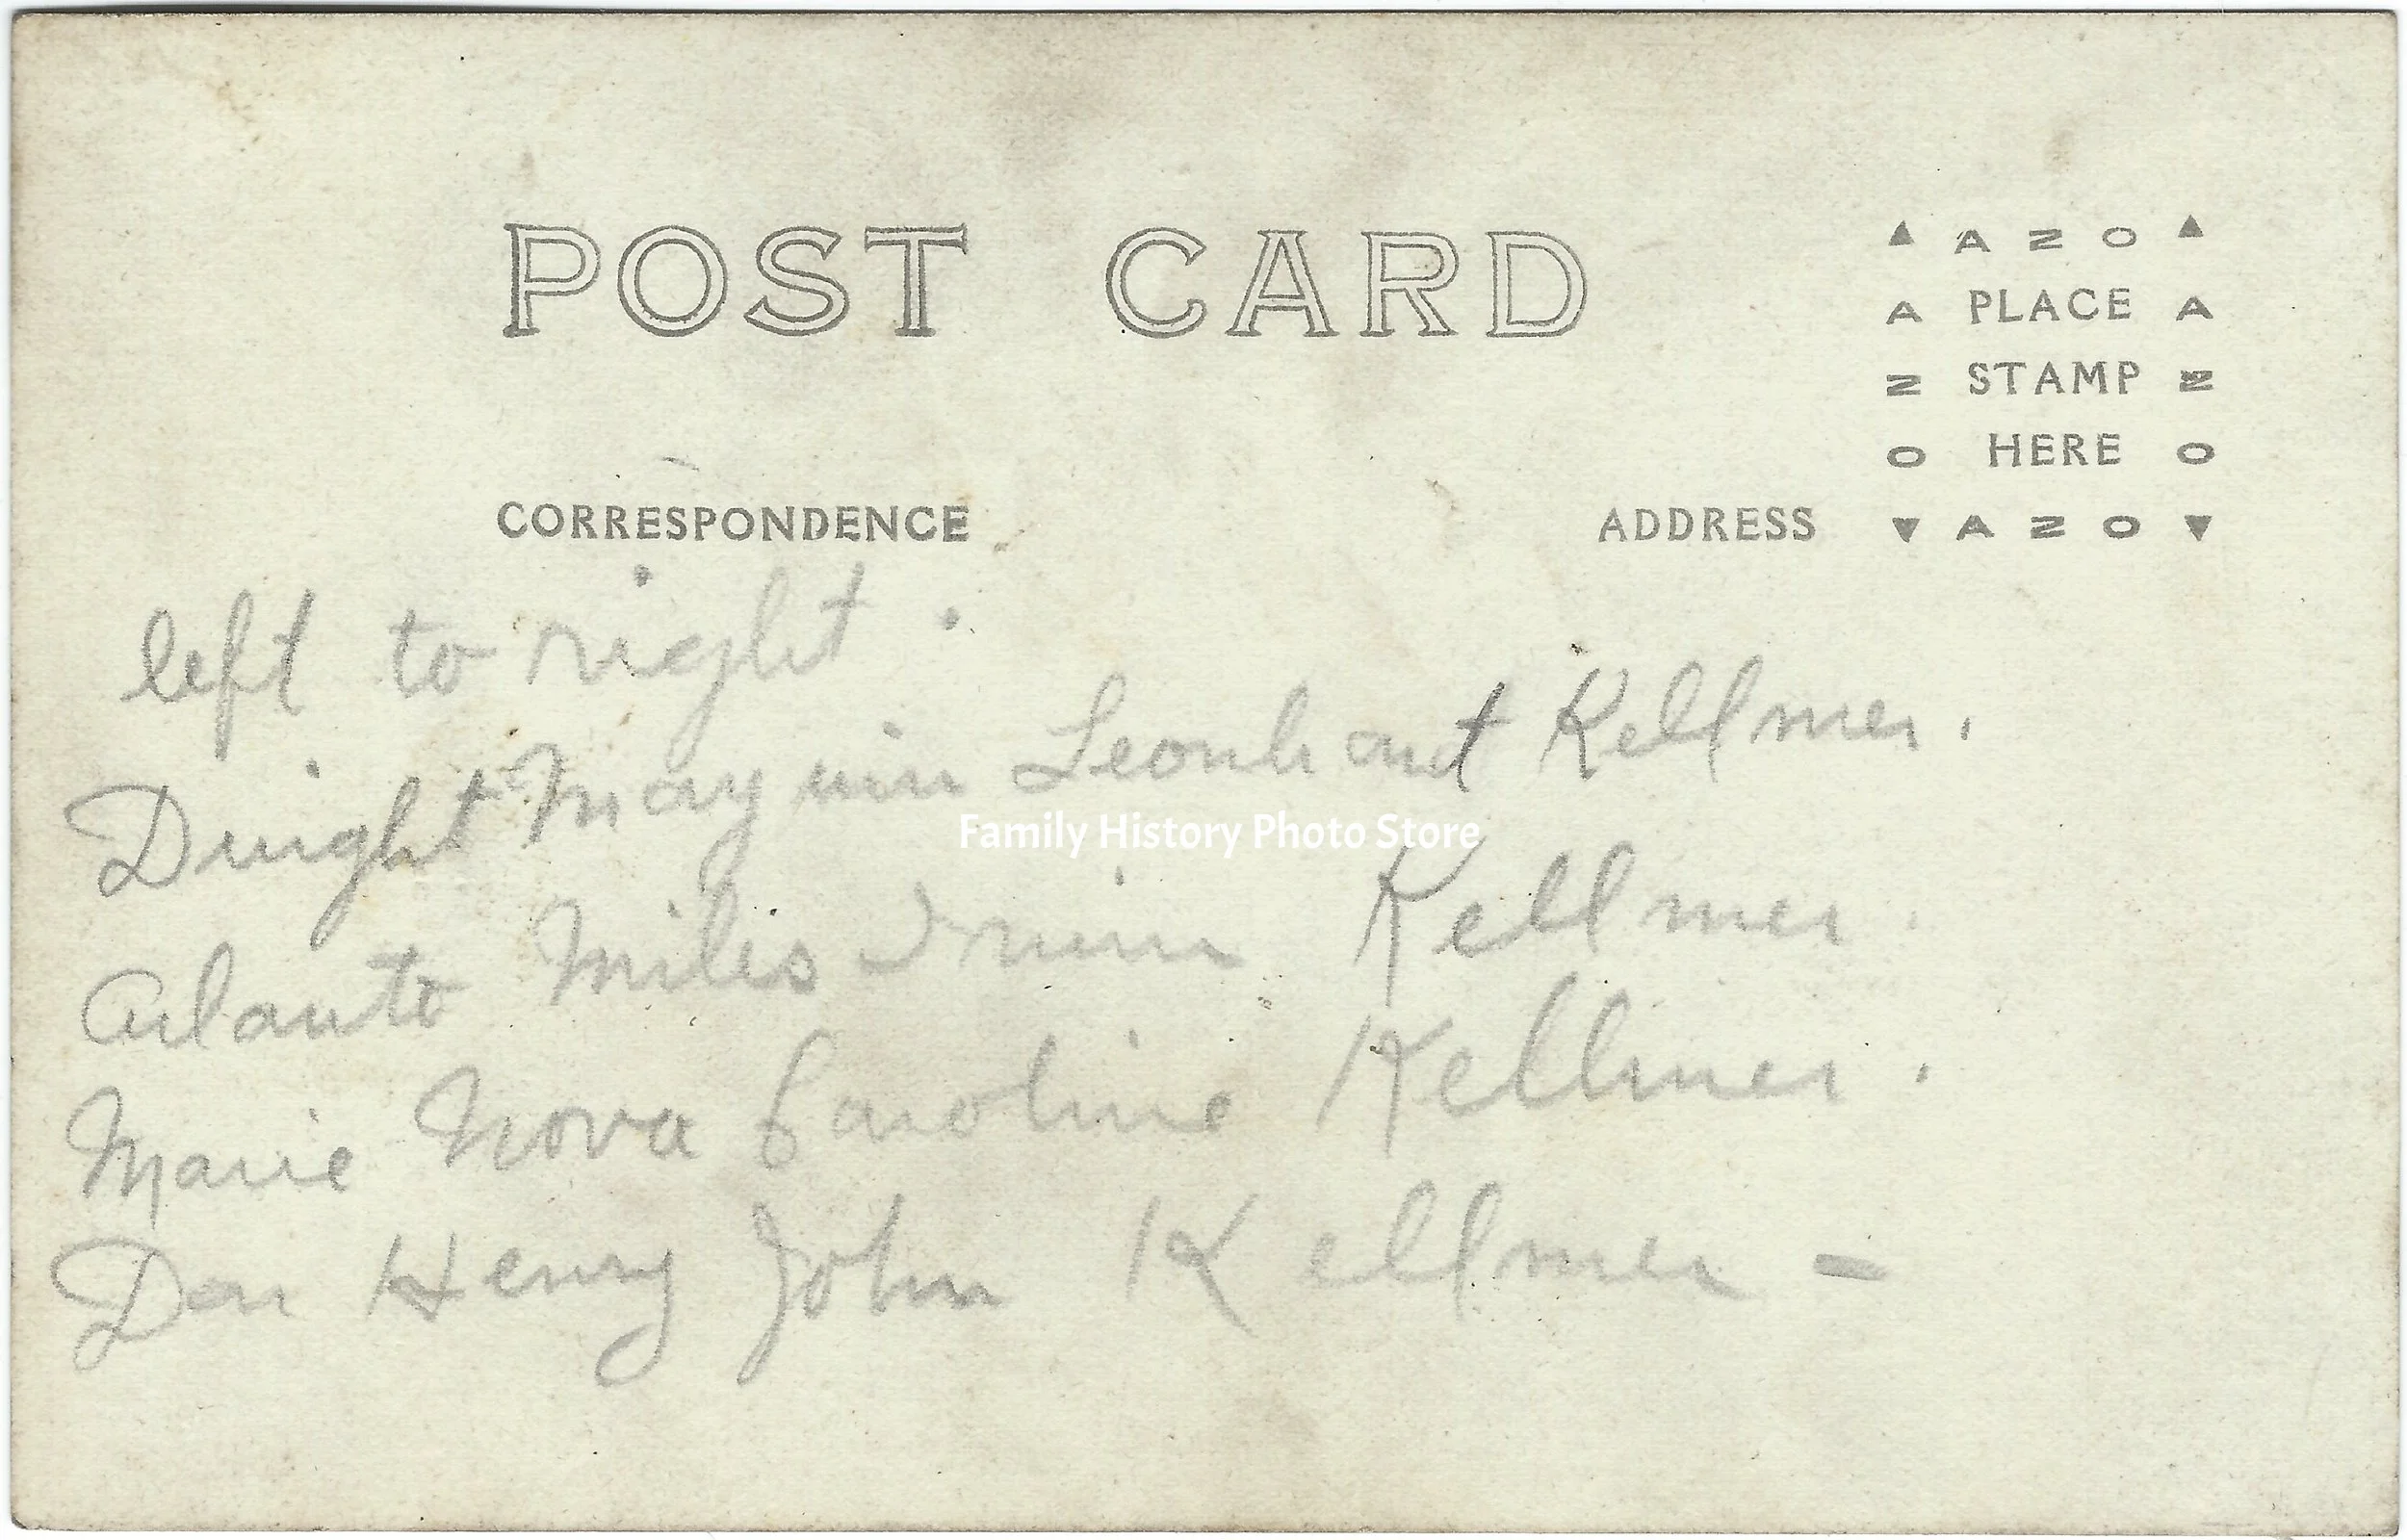 POST CARD
▲ A Z O ▲
A PLACE A
Z STAMP Z
O HERE O
CORRESPONDENCE
ADDRESS
▼ A Z O ▼
left to right :
Dwight May Leonhart Kellmer.
Family History Photo Store
Miles Kellmer.
Marie Nova Caroline Kellmer.
Don Henry John Kellmer –